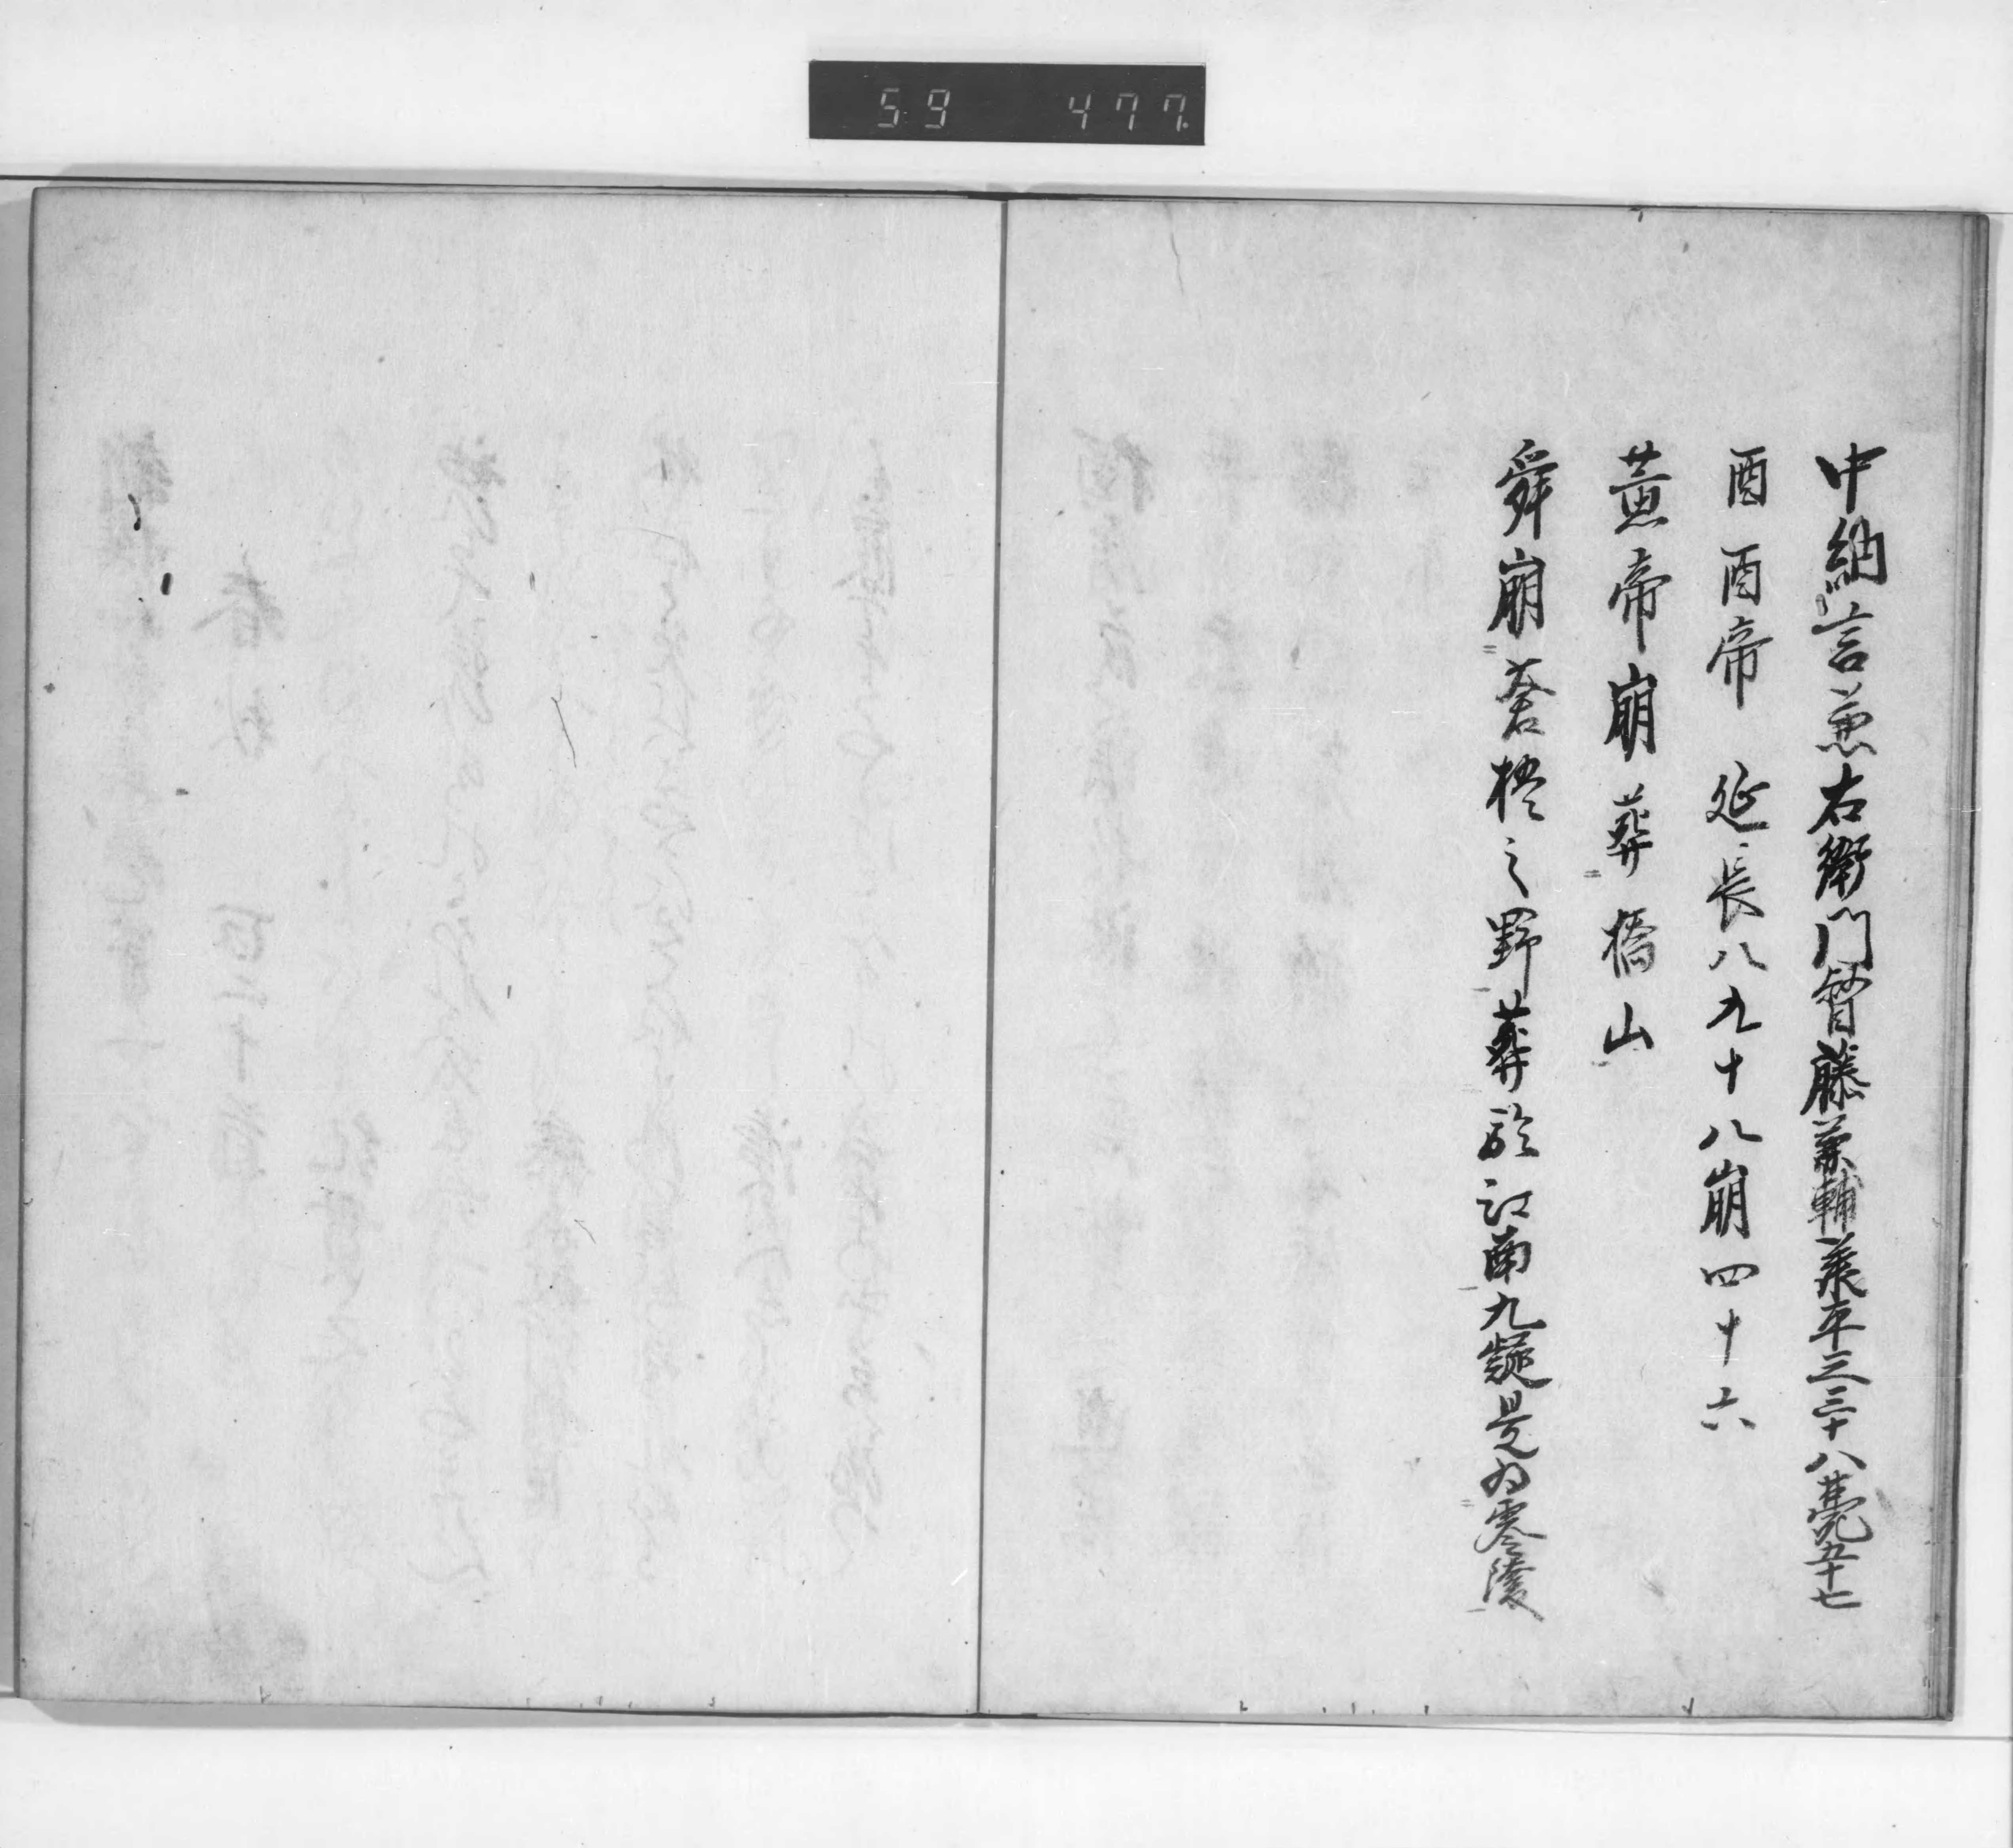 59 477
中納言兼右衛門督藤兼輔承平三三十八薨五十七
酉酉帝 延長八九十八崩四十六
黄帝崩葬橋山
舜崩蒼梧之野葬於江南九疑是為零陵